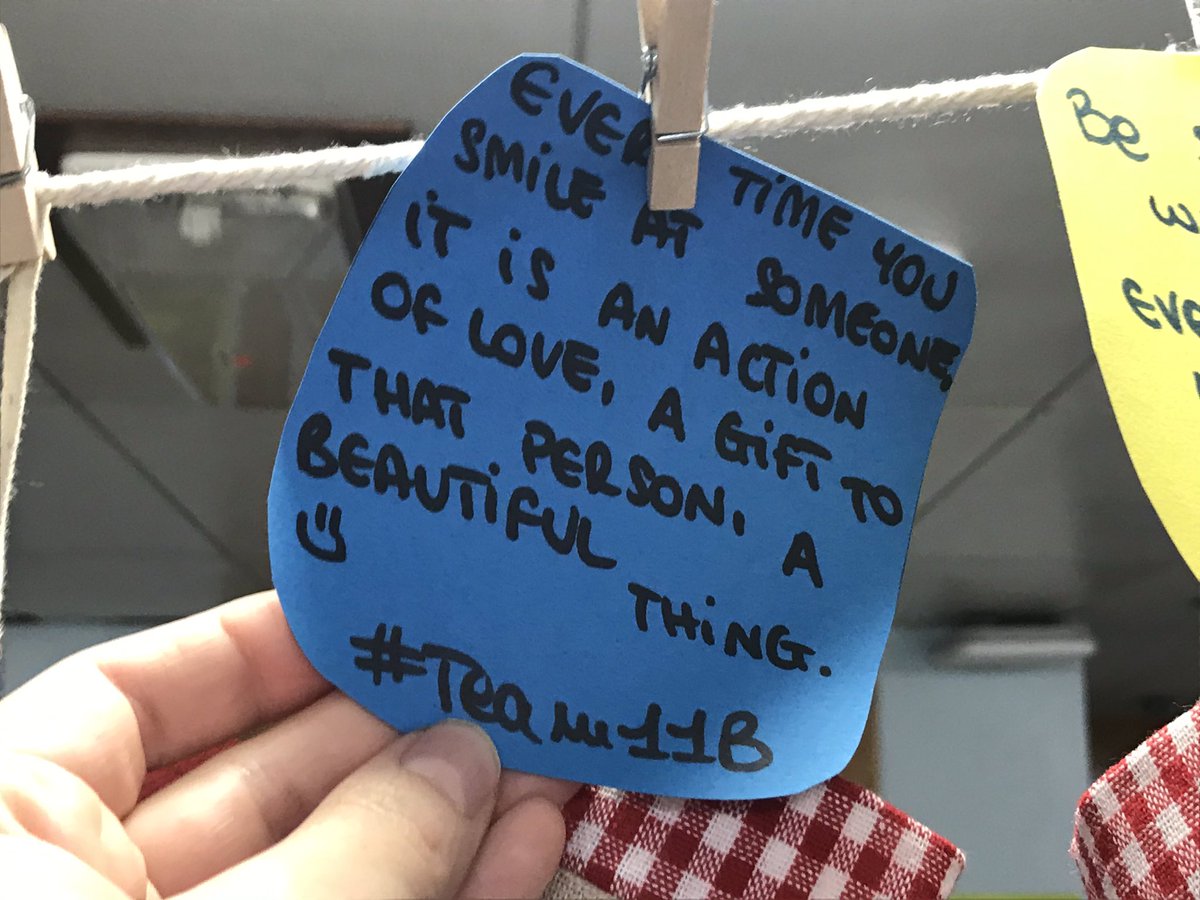 EVER TIME YOU
SMiLE AT SOMEONE,
iT iS AN ACTiON
OF LOVE, A GiFT TO
THAT PERSON, A
BEAUTiFUL THiNG.
#Team11B
Be